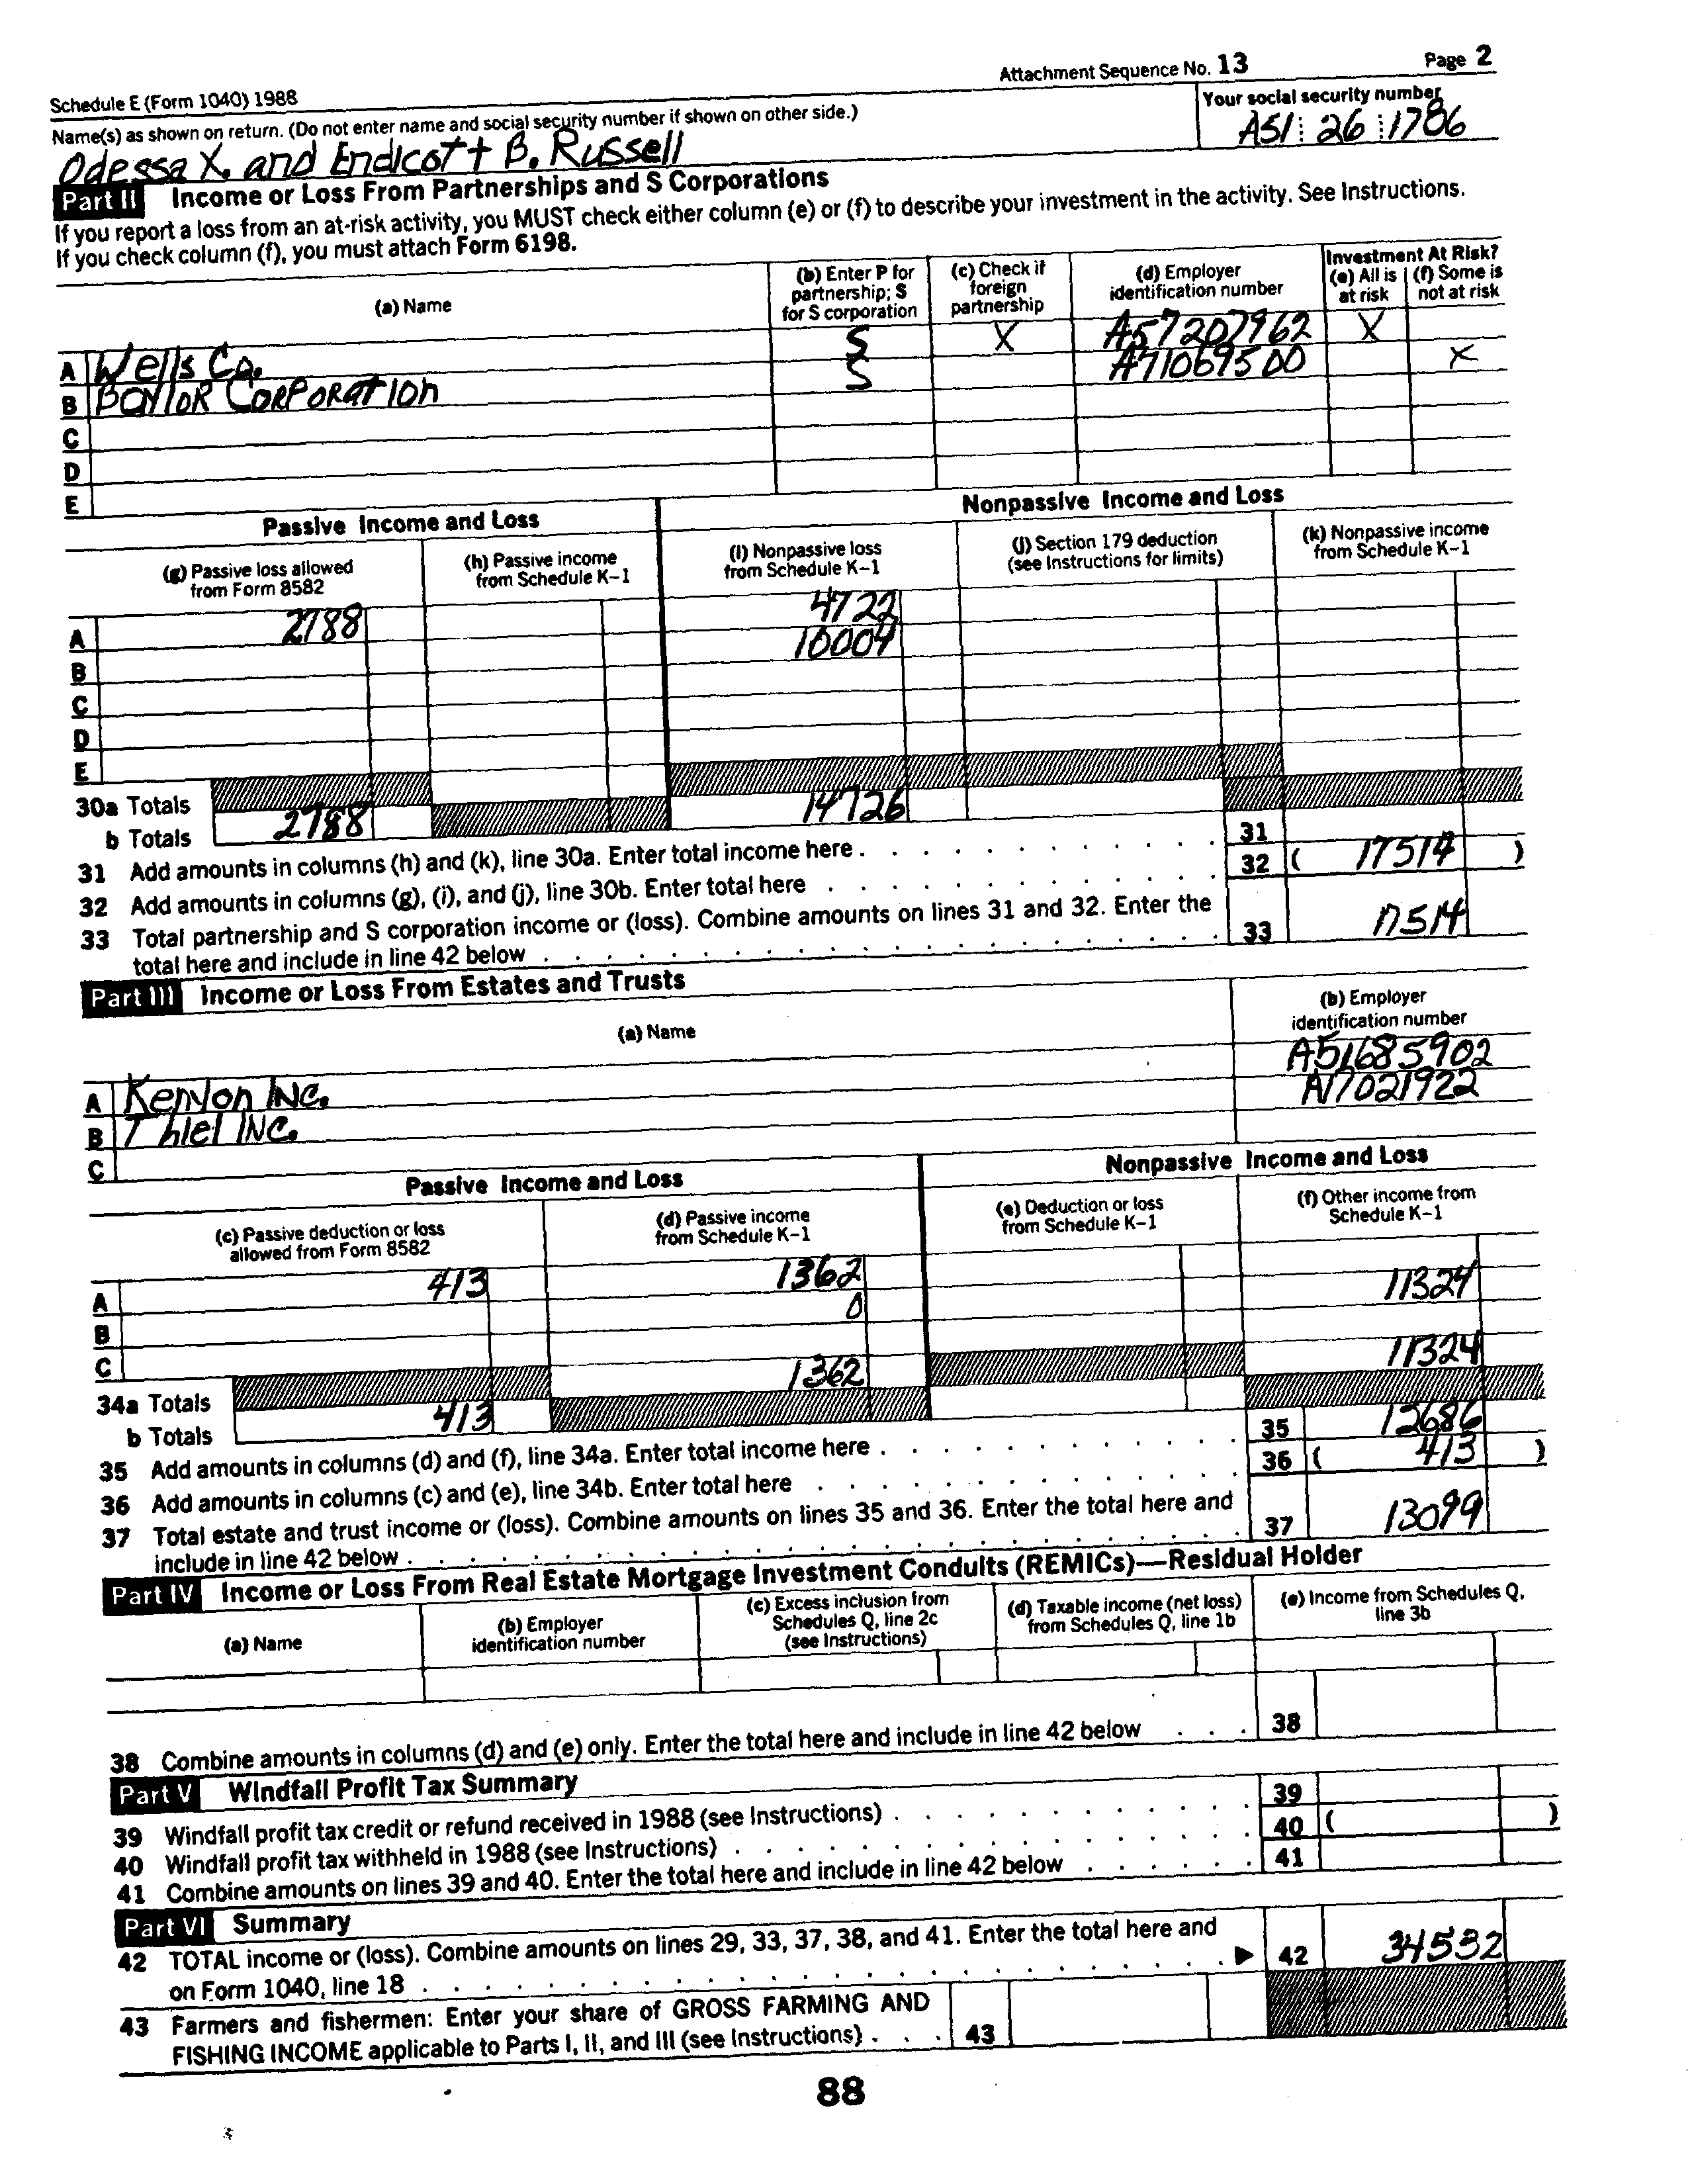 Attachment Sequence No. 13 Page 2
Schedule E (Form 1040) 1988
Name(s) as shown on return. (Do not enter name and social security number if shown on other side.) Your social security number
Odessa X. and Endicott B. Russell A51 26 1786
Part II Income or Loss From Partnerships and S Corporations
If you report a loss from an at-risk activity, you MUST check either column (e) or (f) to describe your investment in the activity. See Instructions.
If you check column (f), you must attach Form 6198.
(a) Name (b) Enter P for partnership; S for S corporation (c) Check if foreign partnership (d) Employer identification number Investment At Risk? (e) All is at risk (f) Some is not at risk
A Wells Co. S X A57207962 X
B Baylor Corporation S A71069500 X
C
D
E
Passive Income and Loss Nonpassive Income and Loss
(g) Passive loss allowed from Form 8582 (h) Passive income from Schedule K–1 (i) Nonpassive loss from Schedule K–1 (j) Section 179 deduction (see Instructions for limits) (k) Nonpassive income from Schedule K–1
A 2788 4722
B 10004
C
D
E
30a Totals
b Totals 2788 14726
31 Add amounts in columns (h) and (k), line 30a. Enter total income here . . . 31
32 Add amounts in columns (g), (i), and (j), line 30b. Enter total here . . . 32 ( 17514 )
33 Total partnership and S corporation income or (loss). Combine amounts on lines 31 and 32. Enter the
total here and include in line 42 below . . . 33 17514
Part III Income or Loss From Estates and Trusts
(a) Name (b) Employer identification number
A Kenyon Inc. A51685902
B Thiel Inc. A17021922
C
Passive Income and Loss Nonpassive Income and Loss
(c) Passive deduction or loss allowed from Form 8582 (d) Passive income from Schedule K–1 (e) Deduction or loss from Schedule K–1 (f) Other income from Schedule K–1
A 413 1362 11324
B 0
C
34a Totals 1362 11324
b Totals 413
35 Add amounts in columns (d) and (f), line 34a. Enter total income here . . . 35 12686
36 Add amounts in columns (c) and (e), line 34b. Enter total here . . . 36 ( 413 )
37 Total estate and trust income or (loss). Combine amounts on lines 35 and 36. Enter the total here and
include in line 42 below . . . 37 13099
Part IV Income or Loss From Real Estate Mortgage Investment Conduits (REMICs)—Residual Holder
(a) Name (b) Employer identification number (c) Excess inclusion from Schedules Q, line 2c (see Instructions) (d) Taxable income (net loss) from Schedules Q, line 1b (e) Income from Schedules Q, line 3b
38 Combine amounts in columns (d) and (e) only. Enter the total here and include in line 42 below . . . 38
Part V Windfall Profit Tax Summary
39 Windfall profit tax credit or refund received in 1988 (see Instructions) . . . 39
40 Windfall profit tax withheld in 1988 (see Instructions) . . . 40 ( )
41 Combine amounts on lines 39 and 40. Enter the total here and include in line 42 below . . . 41
Part VI Summary
42 TOTAL income or (loss). Combine amounts on lines 29, 33, 37, 38, and 41. Enter the total here and
on Form 1040, line 18 . . . ▶ 42 34532
43 Farmers and fishermen: Enter your share of GROSS FARMING AND
FISHING INCOME applicable to Parts I, II, and III (see Instructions) . . . 43
88